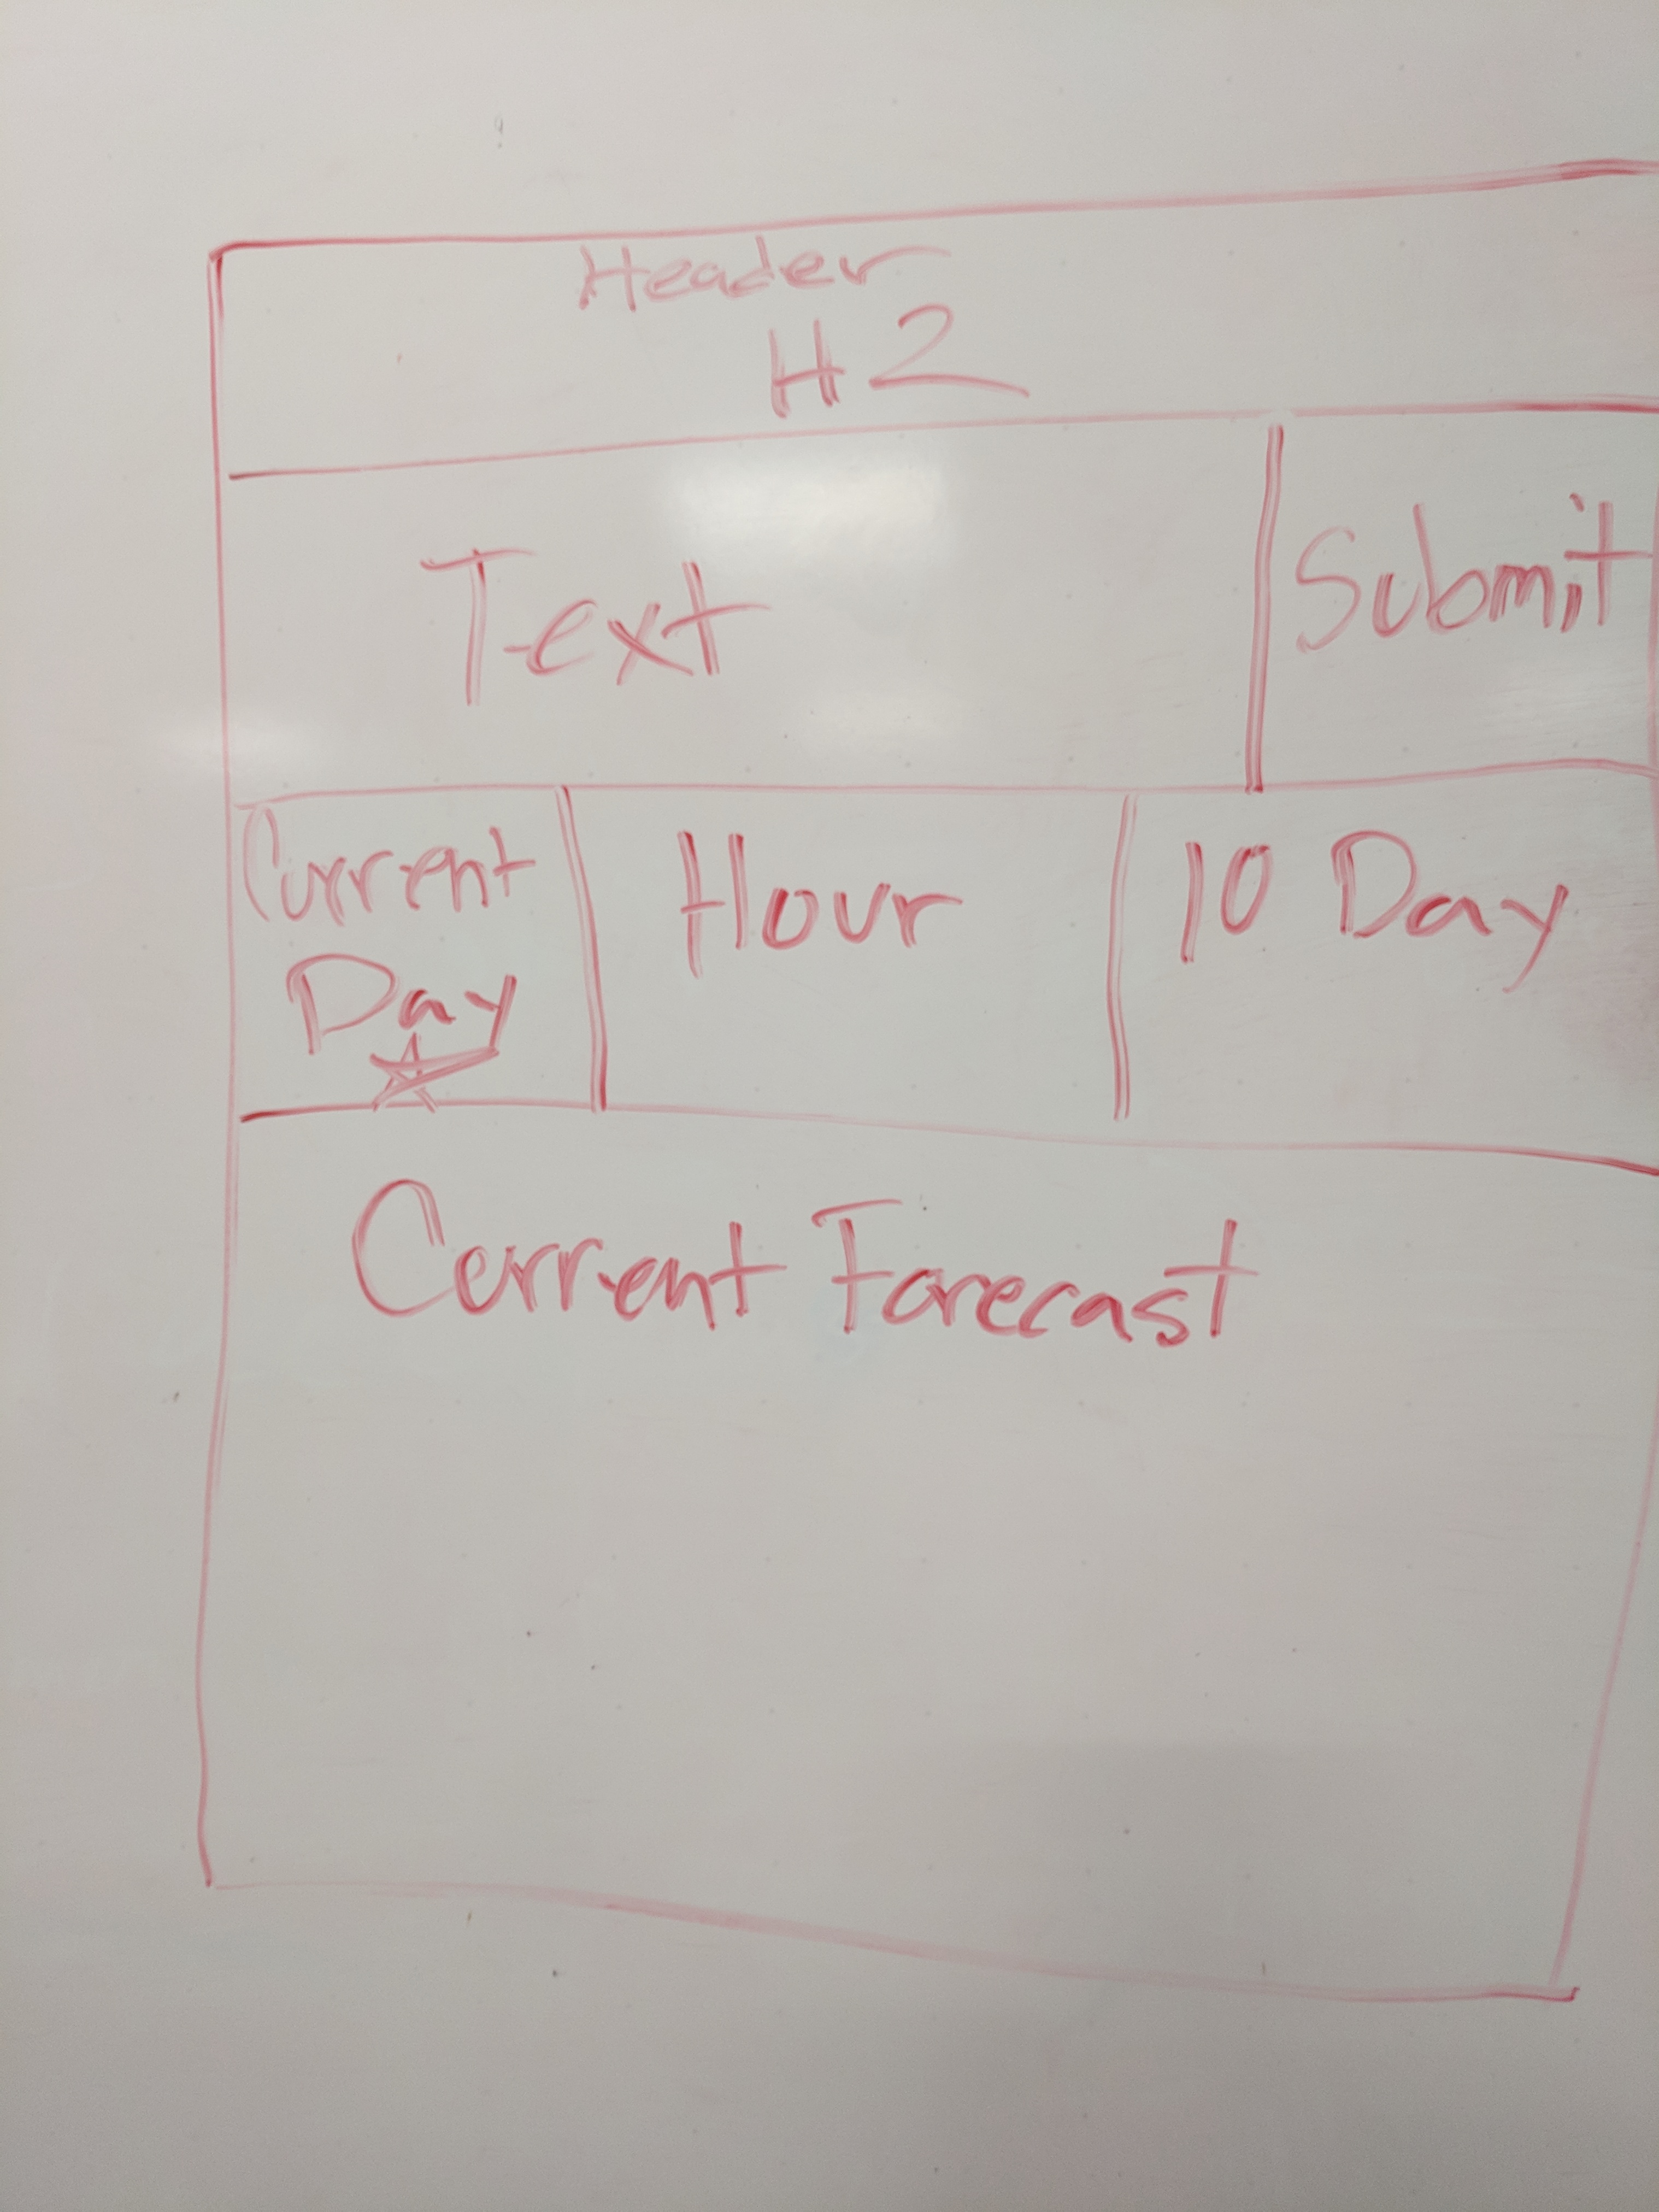 Header
H2
Text
Submit
Current
Day
Hour
10 Day
Current Forecast